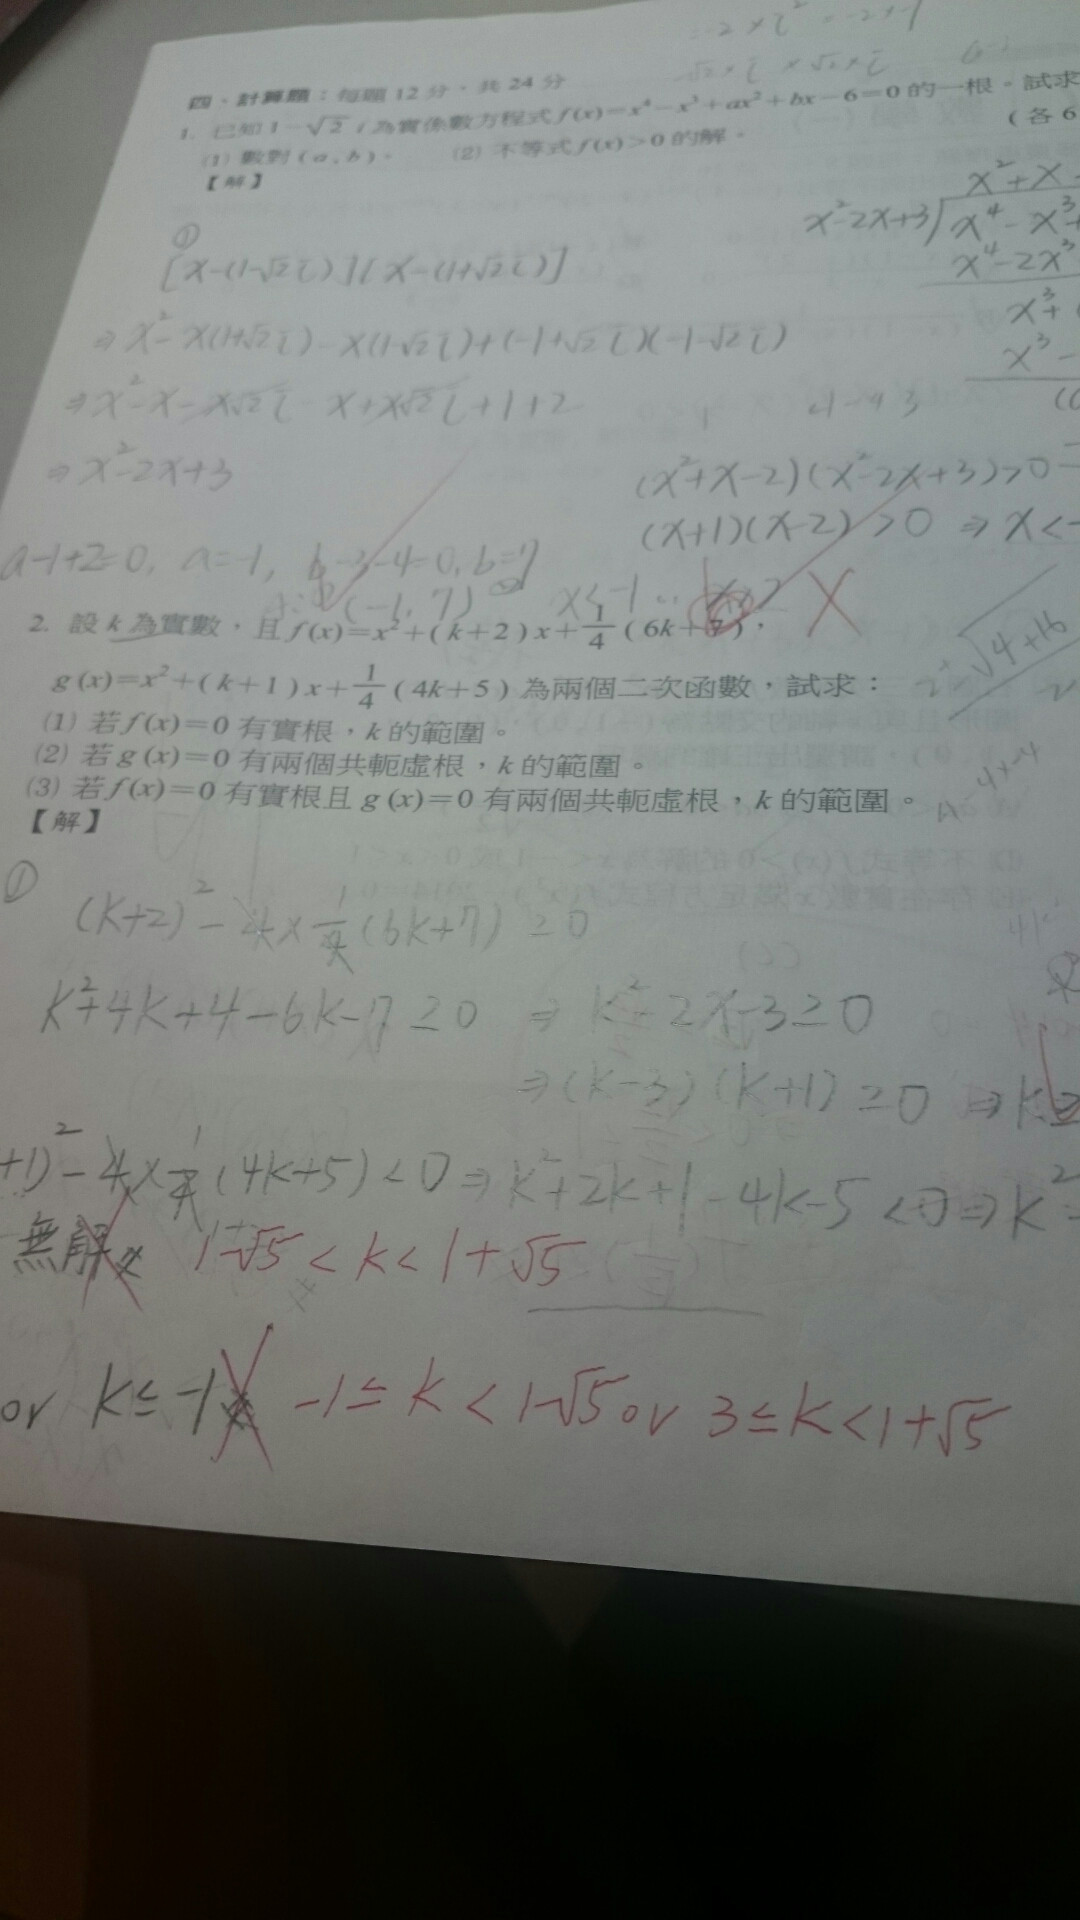 -2×i² = -2×-1
√2×i×√2×i
四、計算題:每題12分,共24分
1. 已知1-√2 i為實係數方程式f(x)=x⁴-x³+ax²+bx-6=0的一根。試求
(1) 數對(a,b)。 (2) 不等式f(x)>0的解。 (各6
【解】
x²+x-
x²-2x+3 x⁴-x³+
x⁴-2x³
x³+
x³-
①
[x-(1-√2i)][x-(1+√2i)]
⇒x²-x(1+√2i)-x(1-√2i)+(-1+√2i)(-1-√2i)
⇒x²-x-x√2i-x+x√2i+1+2
⇒x²-2x+3
(x²+x-2)(x²-2x+3)>0
(x+1)(x-2)>0 ⇒x<-
a-1+2=0, a=-1, b-3-4=0, b=7
(-1,7) x<-1 or x>2
2. 設k為實數,且f(x)=x²+(k+2)x+1/4(6k+7),
g(x)=x²+(k+1)x+1/4(4k+5)為兩個二次函數,試求:
(1) 若f(x)=0有實根,k的範圍。
(2) 若g(x)=0有兩個共軛虛根,k的範圍。
(3) 若f(x)=0有實根且g(x)=0有兩個共軛虛根,k的範圍。
【解】
√4+16
①
(k+2)²-4×1/4(6k+7)≥0
k²+4k+4-6k-7≥0 ⇒k²-2x-3≥0
⇒(k-3)(k+1)≥0 ⇒k≥
+1)²-4×1/4(4k+5)<0⇒k²+2k+1-4k-5<0⇒k²-
無解 1-√5<k<1+√5
or k≤-1 -1≤k<1-√5 or 3≤k<1+√5